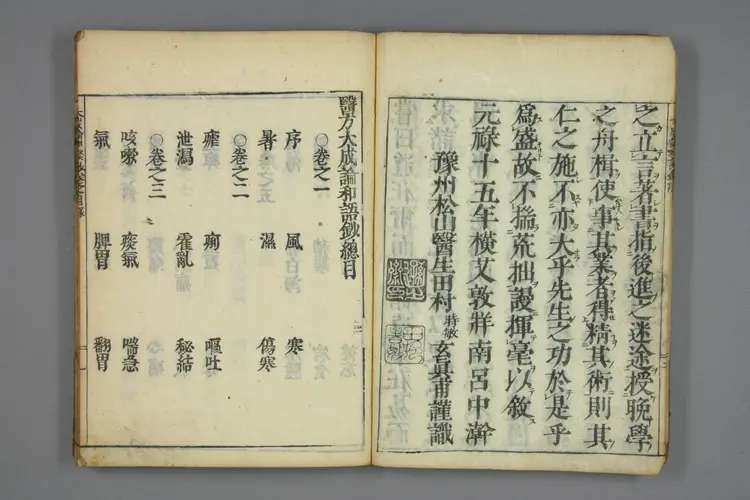 之立言著書指後進之迷途授晚學
之舟楫使事其業者得精其術則其
仁之施不亦大乎先生之功於是乎
爲盛故不揣荒拙謾揮毫以敘
元祿十五年橫艾敦牂南呂中澣
豫州松山醫生田村時敏玄眞甫謹識
醫方大成論和語鈔總目
○卷之一
序 風 寒
暑 濕 傷寒
○卷之二
瘧 痢 嘔吐
泄瀉 霍亂 秘結
○卷之三
咳嗽 痰氣 喘急
氣 脾胃 翻胃